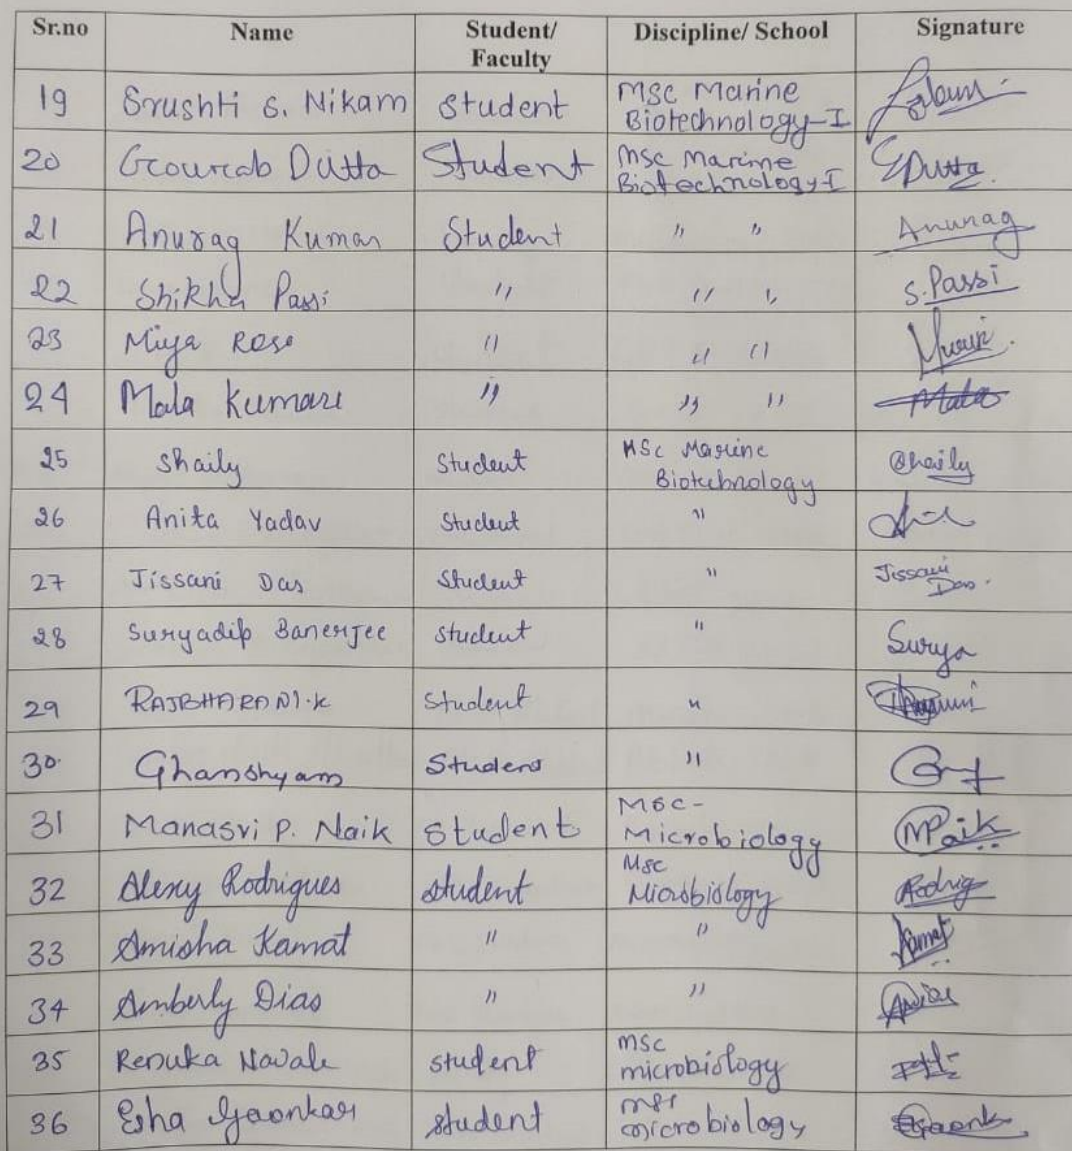 Sr.no Name Student/ Faculty Discipline/ School Signature
19 Srushti S. Nikam Student MSc Marine Biotechnology-I
20 Gourab Dutta Student MSc Marine Biotechnology-I GDutta
21 Anurag Kumar Student " " Anurag
22 Shikha Passi " " " S.Passi
23 Miya Rose " " "
24 Mala Kumari " " " Mala
25 Shaily Student MSc Marine Biotechnology Shaily
26 Anita Yadav Student "
27 Jissani Das Student " Jissani Das.
28 Suryadip Banerjee Student " Surya
29 RAJBHARANI.K Student "
30. Ghanshyam Student "
31 Manasvi P. Naik Student MSc- Microbiology MPaik
32 Alexy Rodrigues student Msc Microbiology Rodrig
33 Amisha Kamat " " Kamat
34 Amberly Dias " "
35 Renuka Navale student msc microbiology
36 Esha Gaonkar student msc microbiology